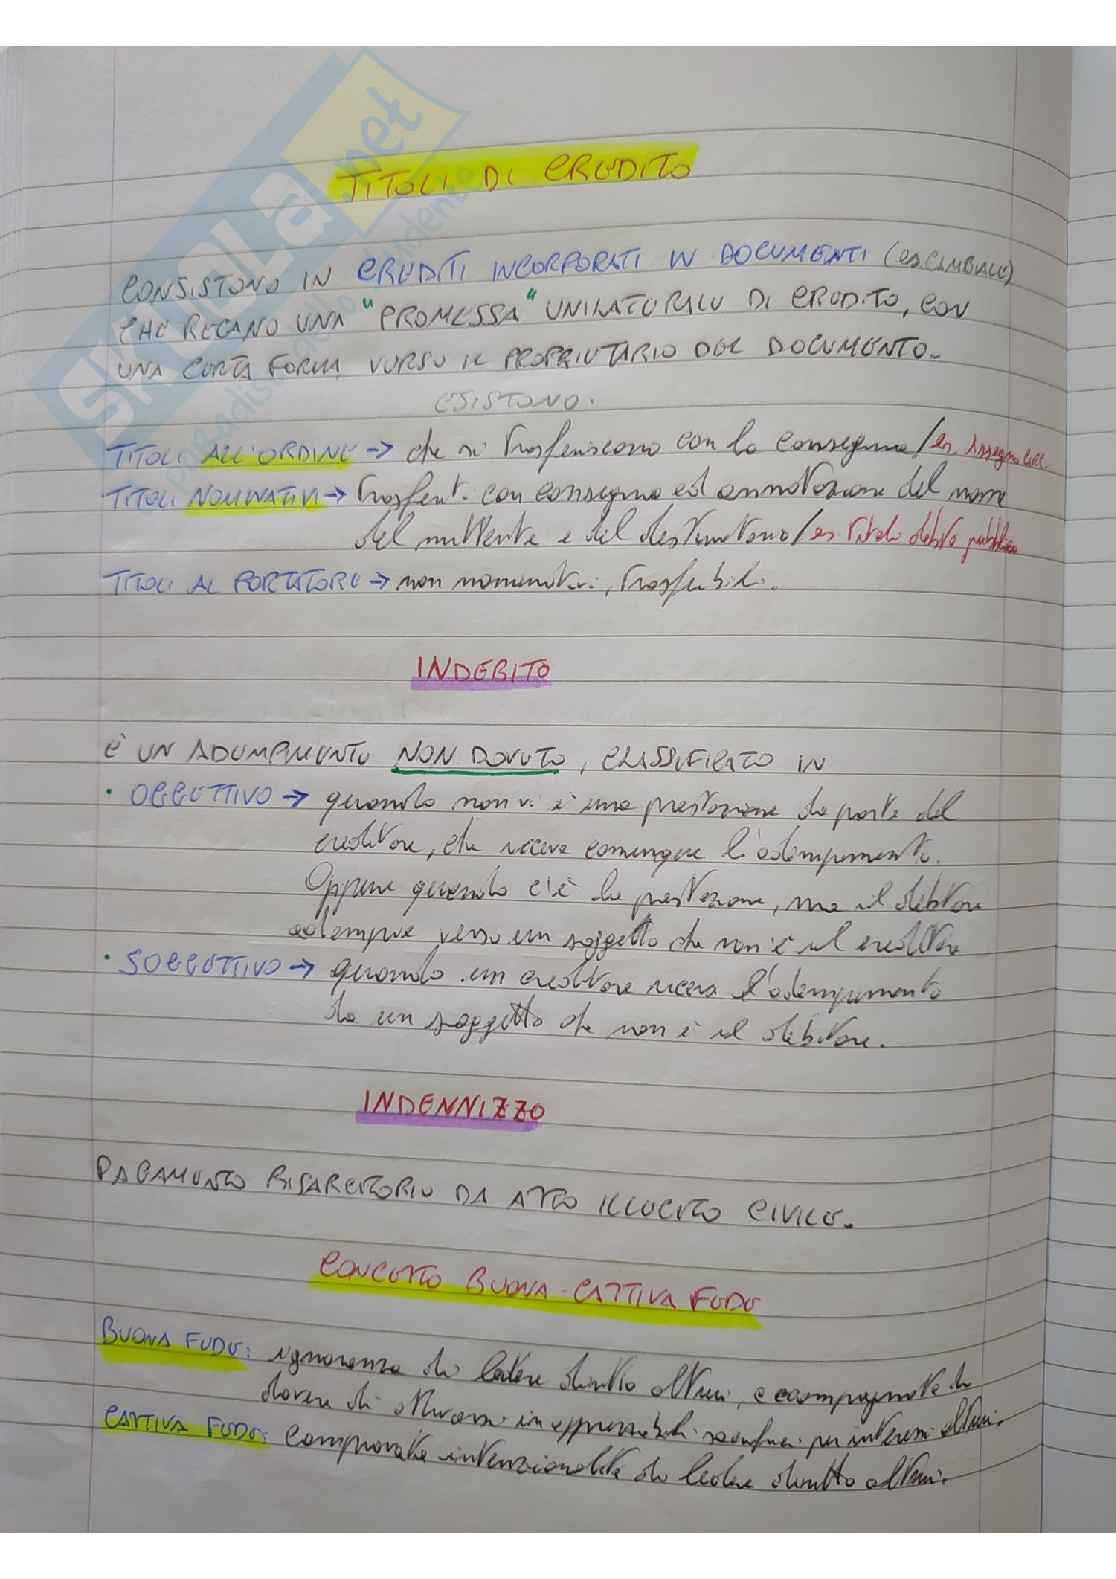 SKUOLA.net
TITOLI DI CREDITO
CONSISTONO IN CREDITI INCORPORATI IN DOCUMENTI (es CAMBIALE)
CHE RECANO UNA "PROMESSA" UNILATERALE DI CREDITO, CON
UNA CERTA FORMA VERSO IL PROPRIETARIO DEL DOCUMENTO.
ESISTONO:
TITOLI ALL'ORDINE → che si trasferiscono con la consegna / es. Assegno
TITOLI NOMINATIVI → Trasferit. con consegna ed annotazione del nome
del mittente e del destinatario / es Titoli debito pubblico
TITOLI AL PORTATORE → non nominativi, trasferibili.
INDEBITO
È UN ADEMPIMENTO NON DOVUTO, CLASSIFICATO IN
• OGGETTIVO → quando non vi è una prestazione da parte del
creditore, che riceve comunque l'adempimento.
Oppure quando c'è la prestazione, ma il debitore
adempie verso un soggetto che non è il creditore
• SOGGETTIVO → quando un creditore riceve l'adempimento
da un soggetto che non è il debitore.
INDENNIZZO
PAGAMENTO RISARCITORIO DA ATTO ILLECITO CIVILE.
CONCETTO BUONA-CATTIVA FEDE
BUONA FEDE: ignoranza di ledere diritto altrui, accompagnata da
dovere di attivarsi in apprezzabili sacrifici per interessi altrui.
CATTIVA FEDE: comprovata intenzionalità di ledere diritto altrui.